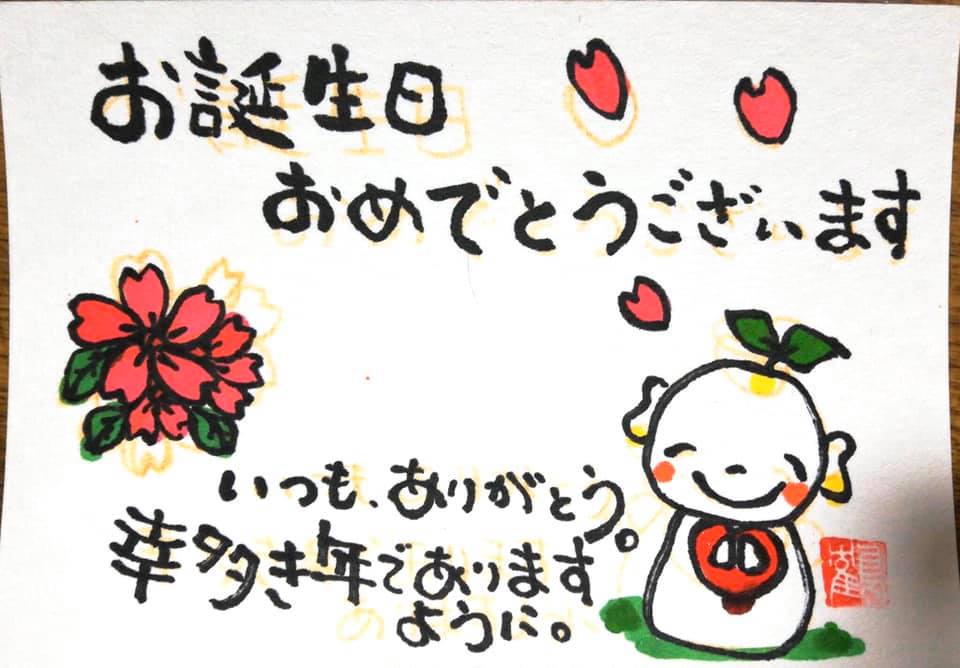 お誕生日
おめでとうございます
いつも、ありがとう。
幸多き年であります
ように。